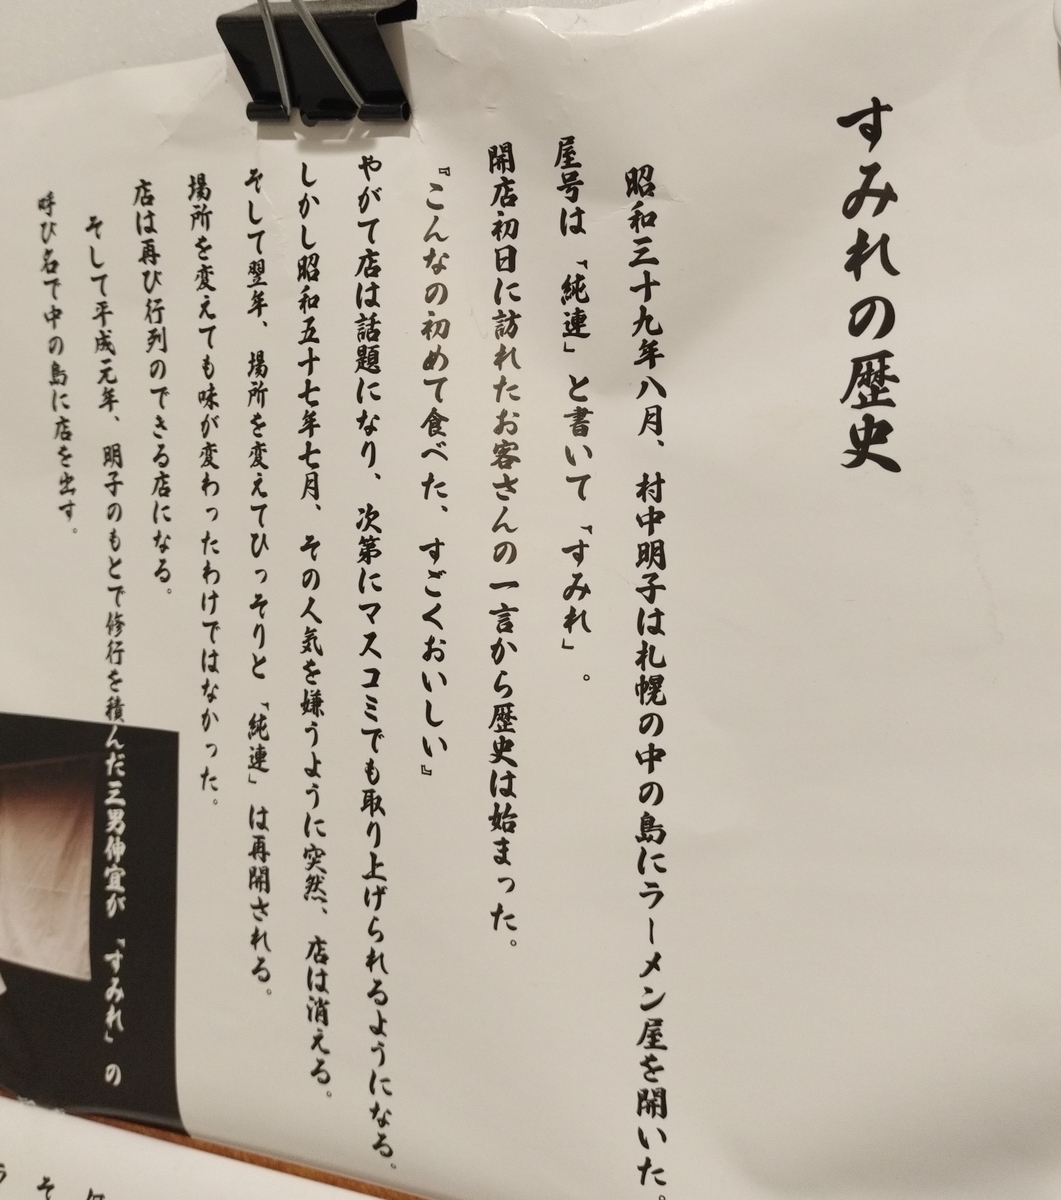 すみれの歴史
昭和三十九年八月、村中明子は札幌の中の島にラーメン屋を開いた。
屋号は「純連」と書いて「すみれ」。
開店初日に訪れたお客さんの一言から歴史は始まった。
『こんなの初めて食べた、すごくおいしい』
やがて店は話題になり、次第にマスコミでも取り上げられるようになる。
しかし昭和五十七年七月、その人気を嫌うように突然、店は消える。
そして翌年、場所を変えてひっそりと「純連」は再開される。
場所を変えても味が変わったわけではなかった。
店は再び行列のできる店になる。
そして平成元年、明子のもとで修行を積んだ三男伸宜が「すみれ」の
呼び名で中の島に店を出す。